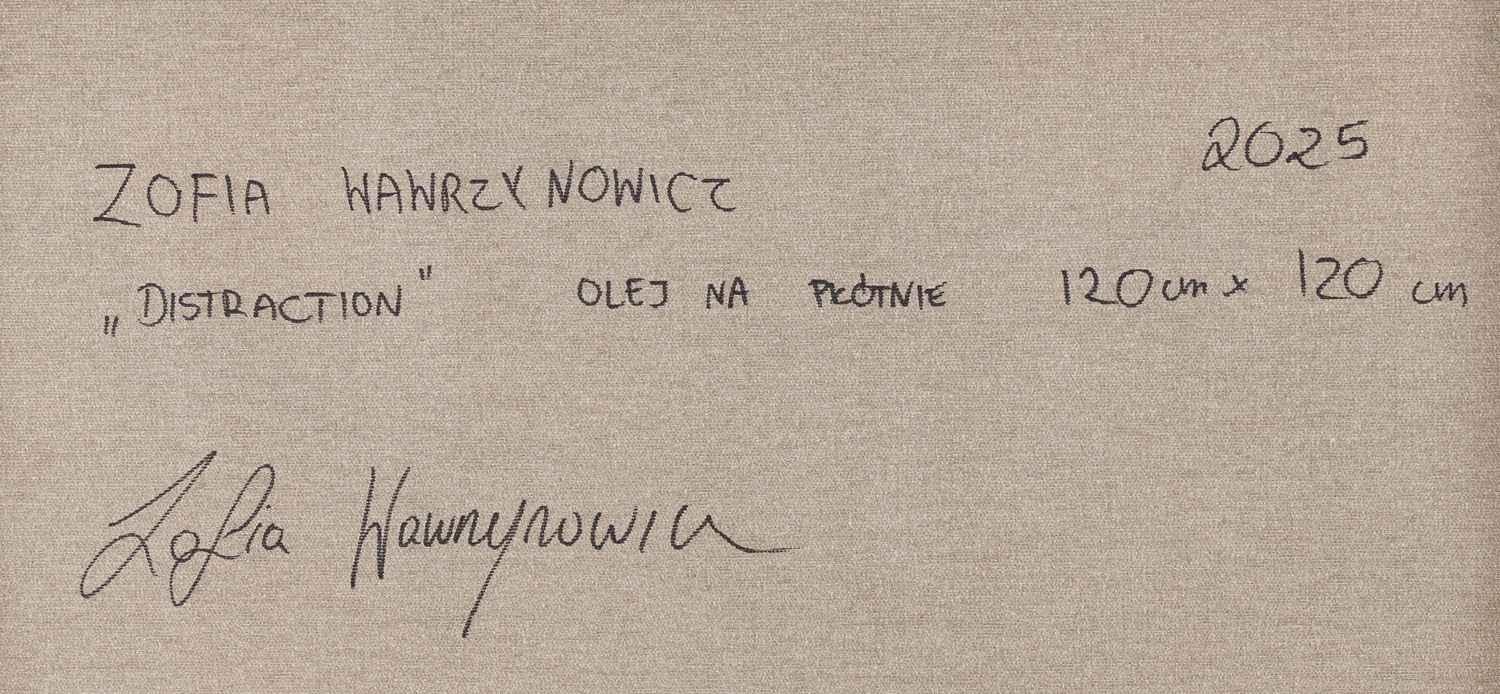 2025
ZOFIA WAWRZYNOWICZ
„DISTRACTION" OLEJ NA PŁÓTNIE 120cm x 120 cm
Zofia Wawrzynowicz